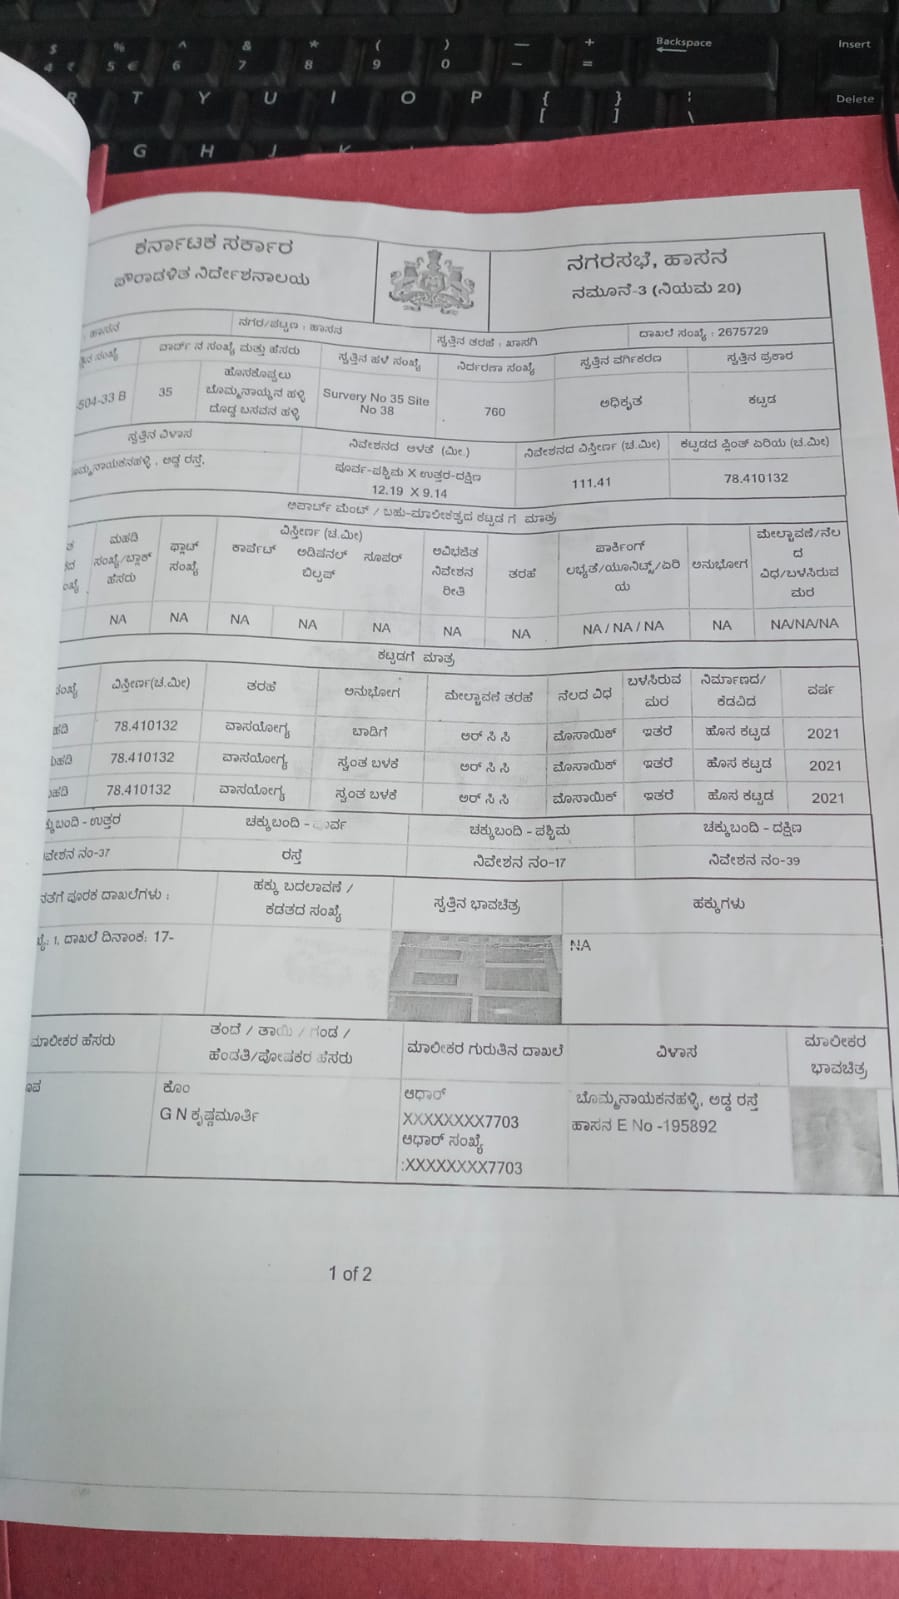 $ % ^ & * ( ) — + Backspace Insert
4 ₹ 5 € 6 7 8 9 0 - =
R T Y U I O P { [ } ] \ Delete
G H J K
ಕರ್ನಾಟಕ ಸರ್ಕಾರ
ಪೌರಾಡಳಿತ ನಿರ್ದೇಶನಾಲಯ
ನಗರಸಭೆ, ಹಾಸನ
ನಮೂನೆ-3 (ನಿಯಮ 20)
: ಹಾಸನ ನಗರ/ಪಟ್ಟಣ : ಹಾಸನ ಸ್ವತ್ತಿನ ತರಹೆ : ಖಾಸಗಿ ದಾಖಲೆ ಸಂಖ್ಯೆ : 2675729
ಸಂಖ್ಯೆ ವಾರ್ಡ್ ನ ಸಂಖ್ಯೆ ಮತ್ತು ಹೆಸರು ಸ್ವತ್ತಿನ ಹಳೆ ಸಂಖ್ಯೆ ನಿರ್ದರಣಾ ಸಂಖ್ಯೆ ಸ್ವತ್ತಿನ ವರ್ಗಿಕರಣ ಸ್ವತ್ತಿನ ಪ್ರಕಾರ
504-33 B 35 ಹೊಸಕೊಪ್ಪಲು ಬೊಮ್ಮನಾಯ್ಕನ ಹಳ್ಳಿ ದೊಡ್ಡ ಬಸವನ ಹಳ್ಳಿ Survery No 35 Site No 38 760 ಅಧಿಕೃತ ಕಟ್ಟಡ
ಸ್ವತ್ತಿನ ವಿಳಾಸ ನಿವೇಶನದ ಅಳತೆ (ಮೀ.) ನಿವೇಶನದ ವಿಸ್ತೀರ್ಣ (ಚ.ಮೀ) ಕಟ್ಟಡದ ಪ್ಲಿಂತ್ ಏರಿಯ (ಚ.ಮೀ)
ಅಡ್ಡ ರಸ್ತೆ, ಪೂರ್ವ-ಪಶ್ಚಿಮ X ಉತ್ತರ-ದಕ್ಷಿಣ
12.19 X 9.14 111.41 78.410132
ಅಪಾರ್ಟ್ ಮೆಂಟ್ / ಬಹು-ಮಾಲೀಕತ್ವದ ಕಟ್ಟಡ ಗೆ ಮಾತ್ರ
ಮಹಡಿ ಸಂಖ್ಯೆ/ಬ್ಲಾಕ್ ಹೆಸರು ಫ್ಲಾಟ್ ಸಂಖ್ಯೆ ವಿಸ್ತೀರ್ಣ (ಚ.ಮೀ) ಕಾರ್ಪೆಟ್ ಅಡಿಷನಲ್ ಬಿಲ್ಟಪ್ ಸೂಪರ್ ಅವಿಭಜಿತ ನಿವೇಶನ ರೀತಿ ತರಹೆ ಪಾರ್ಕಿಂಗ್ ಲಭ್ಯತೆ/ಯೂನಿಟ್ಸ್/ಏರಿಯ ಅನುಭೋಗ ಮೇಲ್ಚಾವಣೆ/ನೆಲದ ವಿಧ/ಬಳಸಿರುವ ಮರ
NA NA NA NA NA NA NA NA / NA / NA NA NA/NA/NA
ಕಟ್ಟಡಗೆ ಮಾತ್ರ
ಸಂಖ್ಯೆ ವಿಸ್ತೀರ್ಣ(ಚ.ಮೀ) ತರಹೆ ಅನುಭೋಗ ಮೇಲ್ಚಾವಣೆ ತರಹೆ ನೆಲದ ವಿಧ ಬಳಸಿರುವ ಮರ ನಿರ್ಮಾಣದ/ಕೆಡವಿದ ವರ್ಷ
78.410132 ವಾಸಯೋಗ್ಯ ಬಾಡಿಗೆ ಆರ್ ಸಿ ಸಿ ಮೊಸಾಯಿಕ್ ಇತರೆ ಹೊಸ ಕಟ್ಟಡ 2021
78.410132 ವಾಸಯೋಗ್ಯ ಸ್ವಂತ ಬಳಕೆ ಆರ್ ಸಿ ಸಿ ಮೊಸಾಯಿಕ್ ಇತರೆ ಹೊಸ ಕಟ್ಟಡ 2021
78.410132 ವಾಸಯೋಗ್ಯ ಸ್ವಂತ ಬಳಕೆ ಆರ್ ಸಿ ಸಿ ಮೊಸಾಯಿಕ್ ಇತರೆ ಹೊಸ ಕಟ್ಟಡ 2021
ಬಂದಿ - ಉತ್ತರ ಚಕ್ಕುಬಂದಿ - ಚಕ್ಕುಬಂದಿ - ಪಶ್ಚಿಮ ಚಕ್ಕುಬಂದಿ - ದಕ್ಷಿಣ
ವೇಶನ ನಂ-37 ರಸ್ತೆ ನಿವೇಶನ ನಂ-17 ನಿವೇಶನ ನಂ-39
ಪೂರಕ ದಾಖಲೆಗಳು : ಹಕ್ಕು ಬದಲಾವಣೆ / ಕಡತದ ಸಂಖ್ಯೆ ಸ್ವತ್ತಿನ ಭಾವಚಿತ್ರ ಹಕ್ಕುಗಳು
1, ದಾಖಲೆ ದಿನಾಂಕ: 17- NA
ಮಾಲೀಕರ ಹೆಸರು ತಂದೆ / ತಾಯಿ / ಗಂಡ / ಹೆಂಡತಿ/ಪೋಷಕರ ಹೆಸರು ಮಾಲೀಕರ ಗುರುತಿನ ದಾಖಲೆ ವಿಳಾಸ ಮಾಲೀಕರ ಭಾವಚಿತ್ರ
ಕೊಂ
G N ಕೃಷ್ಣಮೂರ್ತಿ
ಆಧಾರ್
XXXXXXXX7703
ಆಧಾರ್ ಸಂಖ್ಯೆ
:XXXXXXXX7703
ಬೊಮ್ಮನಾಯಕನಹಳ್ಳಿ, ಅಡ್ಡ ರಸ್ತೆ
ಹಾಸನ E No -195892
1 of 2